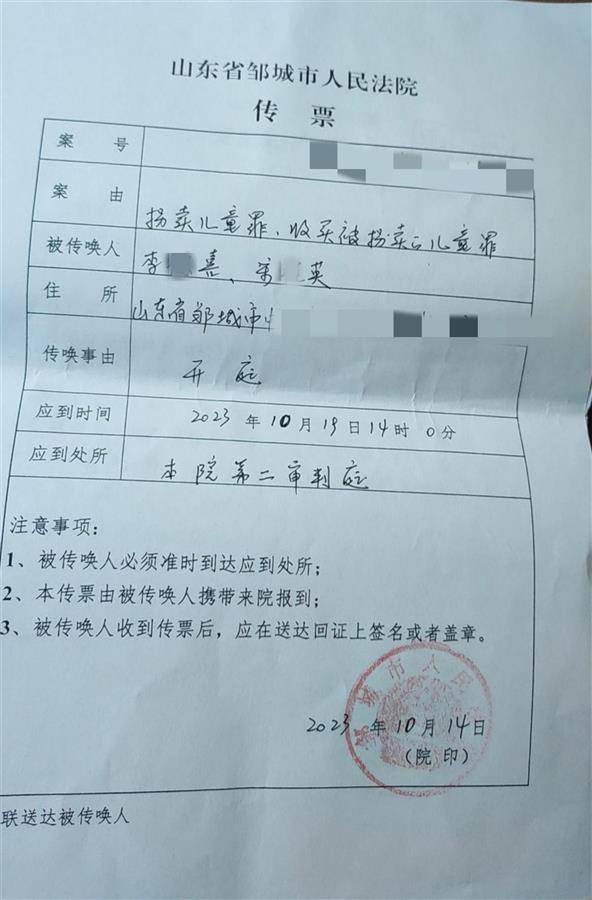 山东省邹城市人民法院
传 票
案 号
案 由 拐卖儿童罪、收买被拐卖之儿童罪
被传唤人 李 喜、宋 英
住 所 山东省邹城市
传唤事由 开庭
应到时间 2023年10月19日14时0分
应到处所 本院第二审判庭
注意事项:
1、被传唤人必须准时到达应到处所;
2、本传票由被传唤人携带来院报到;
3、被传唤人收到传票后,应在送达回证上签名或者盖章。
城市人民
2023年10月14日
(院 印)
联送达被传唤人